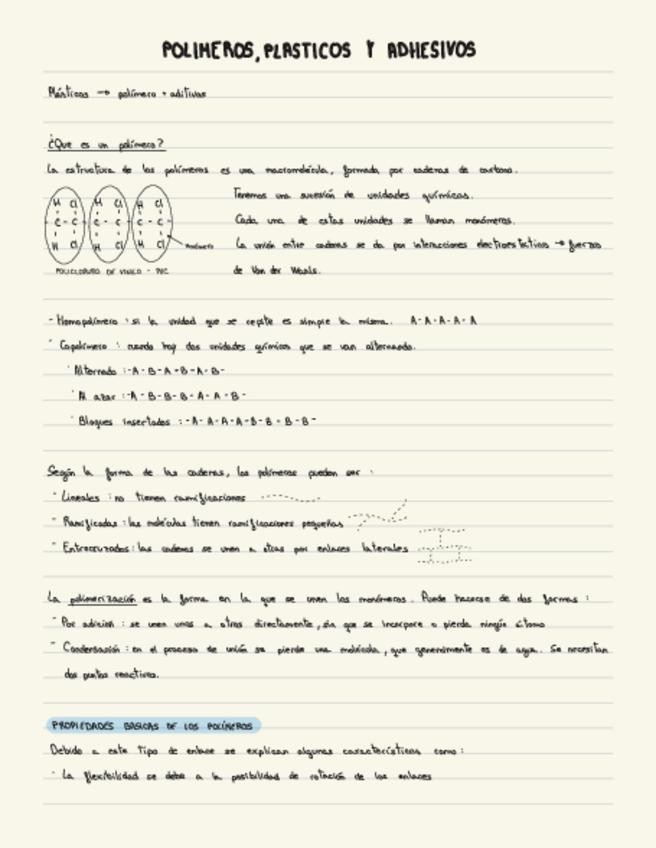 POLIMEROS, PLASTICOS Y ADHESIVOS
Plásticos → polímero + aditivos
¿Que es un polímero?
La estructura de los polímeros es una macromolécula, formada por cadenas de carbono.
H Cl H Cl H Cl
C - C C - C C - C
H Cl H Cl H Cl
POLICLORURO DE VINILO - PVC
Tenemos una sucesión de unidades químicas.
Cada una de estas unidades se llaman monómeros.
La unión entre cadenas se da por interacciones → fuerzas
de Van der Waals.
- Homopolímero : si la unidad que se repite es simple la misma. A - A - A - A - A
- Copolímero : cuando hay dos unidades químicas que se van alternando.
· Alternado : - A - B - A - B - A - B -
· Al azar : - A - B - B - B - A - A - B -
· Bloques insertados : - A - A - A - A - B - B - B - B -
Según la forma de las cadenas, los polímeros pueden ser :
- Lineales : no tienen ramificaciones
- Ramificadas : las moléculas tienen ramificaciones pequeñas
- Entrecruzados : las cadenas se unen a otras por enlaces laterales
La polimerización es la forma en la que se unen los monómeros. Puede hacerse de dos formas :
- Por adición : se unen unos a otros directamente, sin que se incorpore o pierda ningún átomo
- Condensación : en el proceso de unión se pierde una molécula, que generalmente es de agua. Se necesitan
dos puntos reactivos.
PROPIEDADES BASICAS DE LOS POLÍMEROS
Debido a este tipo de enlace se explican algunas características como :
- La flexibilidad se debe a la posibilidad de rotación de los enlaces